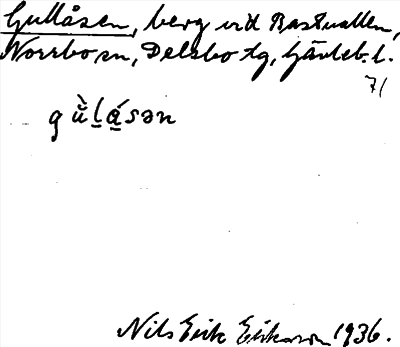 Gullåsen, berg vid Bastvallen,
Norrbo sn, Delsbo tg, Gävleb. l.
71
gu̇̀l̠á̠sən
Nils Erik Eriksson 1936.